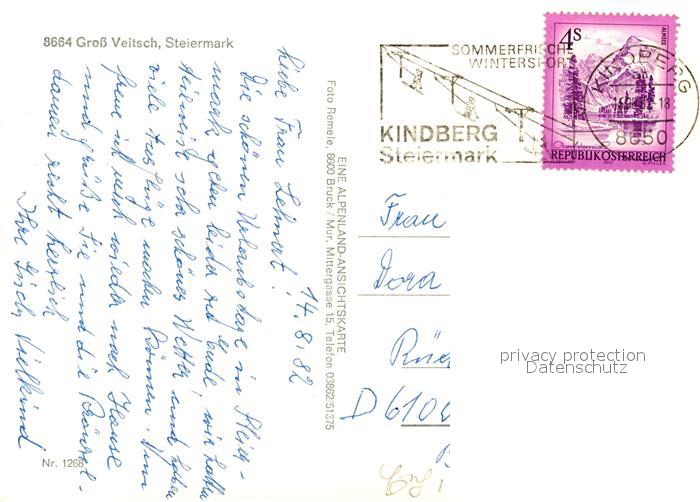 8664 Groß Veitsch, Steiermark
14.8.82
Liebe Frau Lehnert!
Die schönen Urlaubstage in Steier-
mark gehen leider zu Ende, wir hatten
sehr schönes Wetter und haben
viele Ausflüge machen können. Nun
freue ich mich wieder nach Hause
und grüße Sie und die
Damen recht herzlich
Ihre
Nr. 1268
EINE ALPENLAND-ANSICHTSKARTE
Foto Remele, 8600 Bruck / Mur, Mittergasse 15, Telefon 03862/51375
SOMMERFRISCHE
WINTERSPORT
KINDBERG
Steiermark
KINDBERG
8650
4S
ALMSEE
Oberösterreich
REPUBLIK ÖSTERREICH
Frau
Dora
D 610
privacy protection
Datenschutz